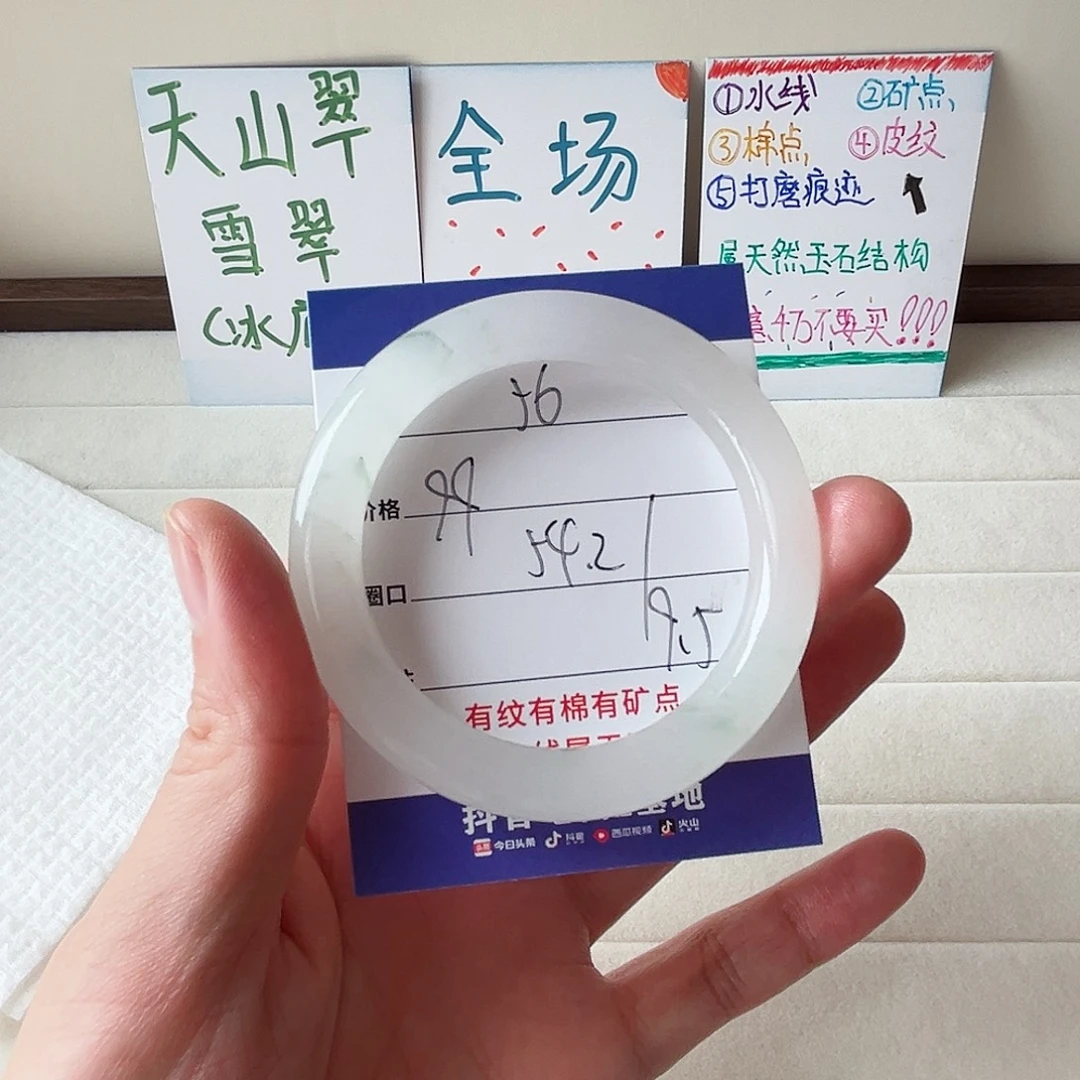 天山翠
雪翠
(冰
全场
①水线 ②矿点、
③棉点, ④皮纹
⑤打磨痕迹
属天然玉石结构
不要买!!!
56
价格 99
圈口 54.2
9.5
有纹有棉有矿点
抖音
基地
头条 今日头条 抖音 西瓜视频 火山